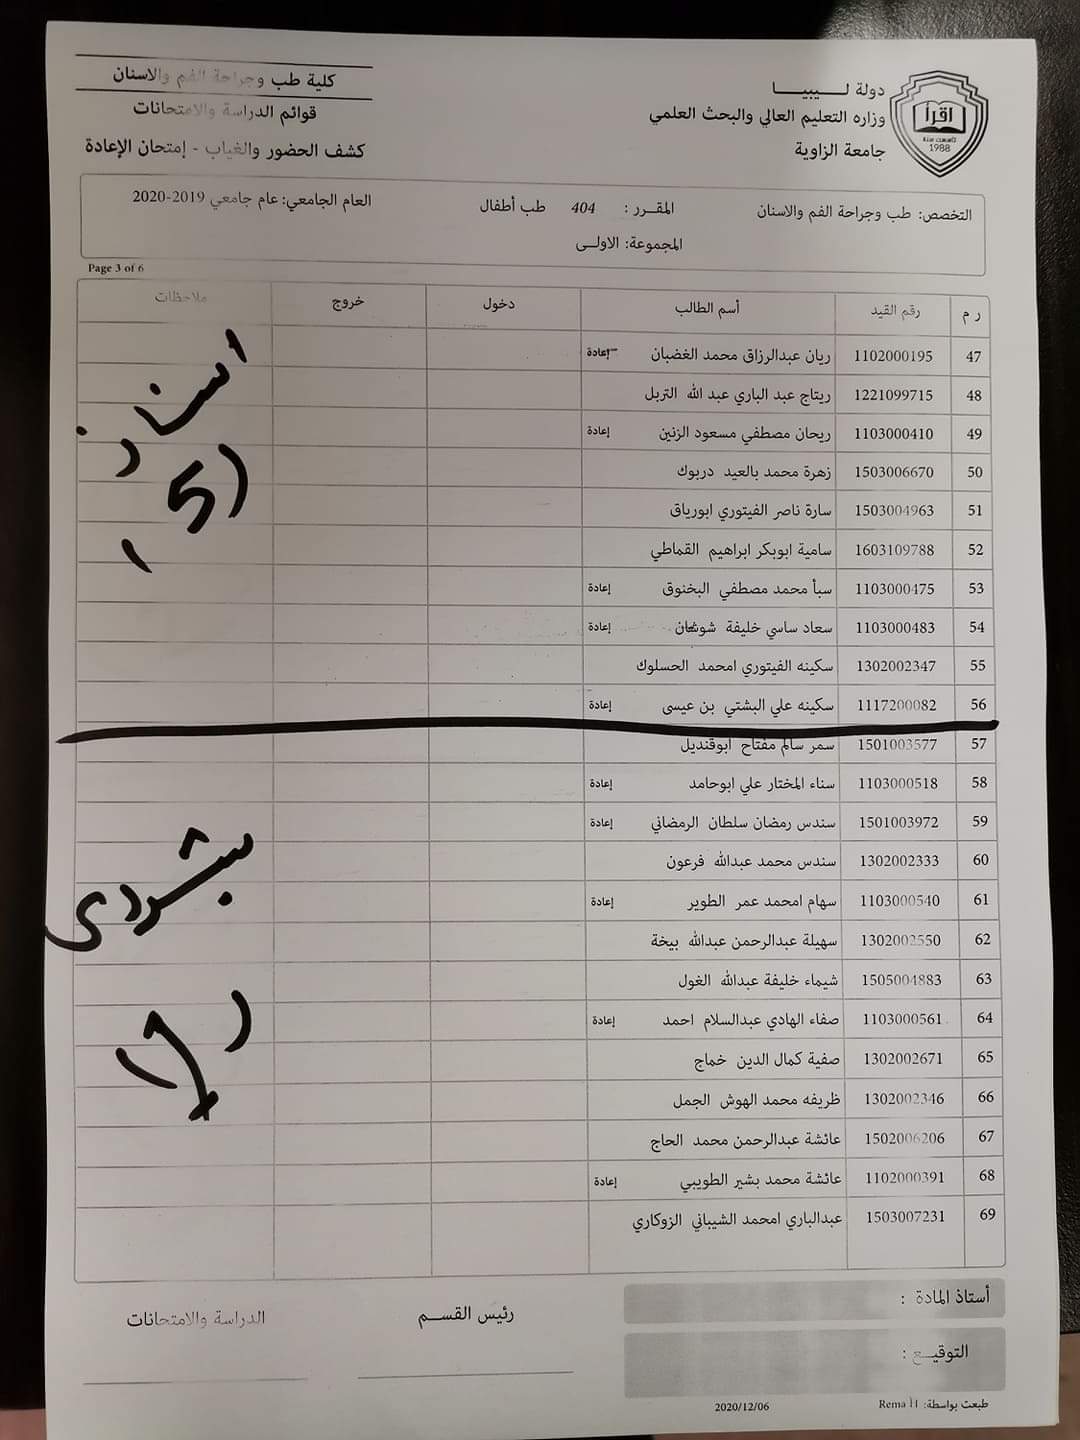 دولة لـــيبيـــــا
وزاره التعليم العالي والبحث العلمي
جامعة الزاوية
اقرأ
1988
كلية طب وجراحة الفم والاسنان
قوائم الدراسة والامتحانات
كشف الحضور والغياب - إمتحان الإعادة
التخصص: طب وجراحة الفم والاسنان المقــرر : 404 طب أطفال العام الجامعي: عام جامعي 2019-2020
المجموعة: الاولــى
Page 3 of 6
ر م رقم القيد أسم الطالب دخول خروج ملاحظات
47 1102000195 ريان عبدالرزاق محمد الغضبان إعادة
48 1221099715 ريتاج عبد الباري عبد الله التربل
49 1103000410 ريحان مصطفي مسعود الزنين إعادة
50 1503006670 زهرة محمد بالعيد دربوك
51 1503004963 سارة ناصر الفيتوري ابورياق
52 1603109788 سامية ابوبكر ابراهيم القماطي
53 1103000475 سبأ محمد مصطفي البخنوق إعادة
54 1103000483 سعاد ساسي خليفة شوشان إعادة
55 1302002347 سكينه الفيتوري امحمد الحسلوك
56 1117200082 سكينه علي البشتي بن عيسى إعادة
57 1501003577 سمر سالم مفتاح ابوقنديل
58 1103000518 سناء المختار علي ابوحامد إعادة
59 1501003972 سندس رمضان سلطان الرمضاني إعادة
60 1302002333 سندس محمد عبدالله فرعون
61 1103000540 سهام امحمد عمر الطوير إعادة
62 1302002550 سهيلة عبدالرحمن عبدالله بيخة
63 1505004883 شيماء خليفة عبدالله الغول
64 1103000561 صفاء الهادي عبدالسلام احمد إعادة
65 1302002671 صفية كمال الدين خماج
66 1302002346 ظريفه محمد الهوش الجمل
67 1502006206 عائشة عبدالرحمن محمد الحاج
68 1102000391 عائشة محمد بشير الطويبي إعادة
69 1503007231 عبدالباري امحمد الشيباني الزوكاري
(5)
أستاذ المادة :
التوقيــع :
رئيس القســم
الدراسة والامتحانات
طبعت بواسطة: Rema
2020/12/06